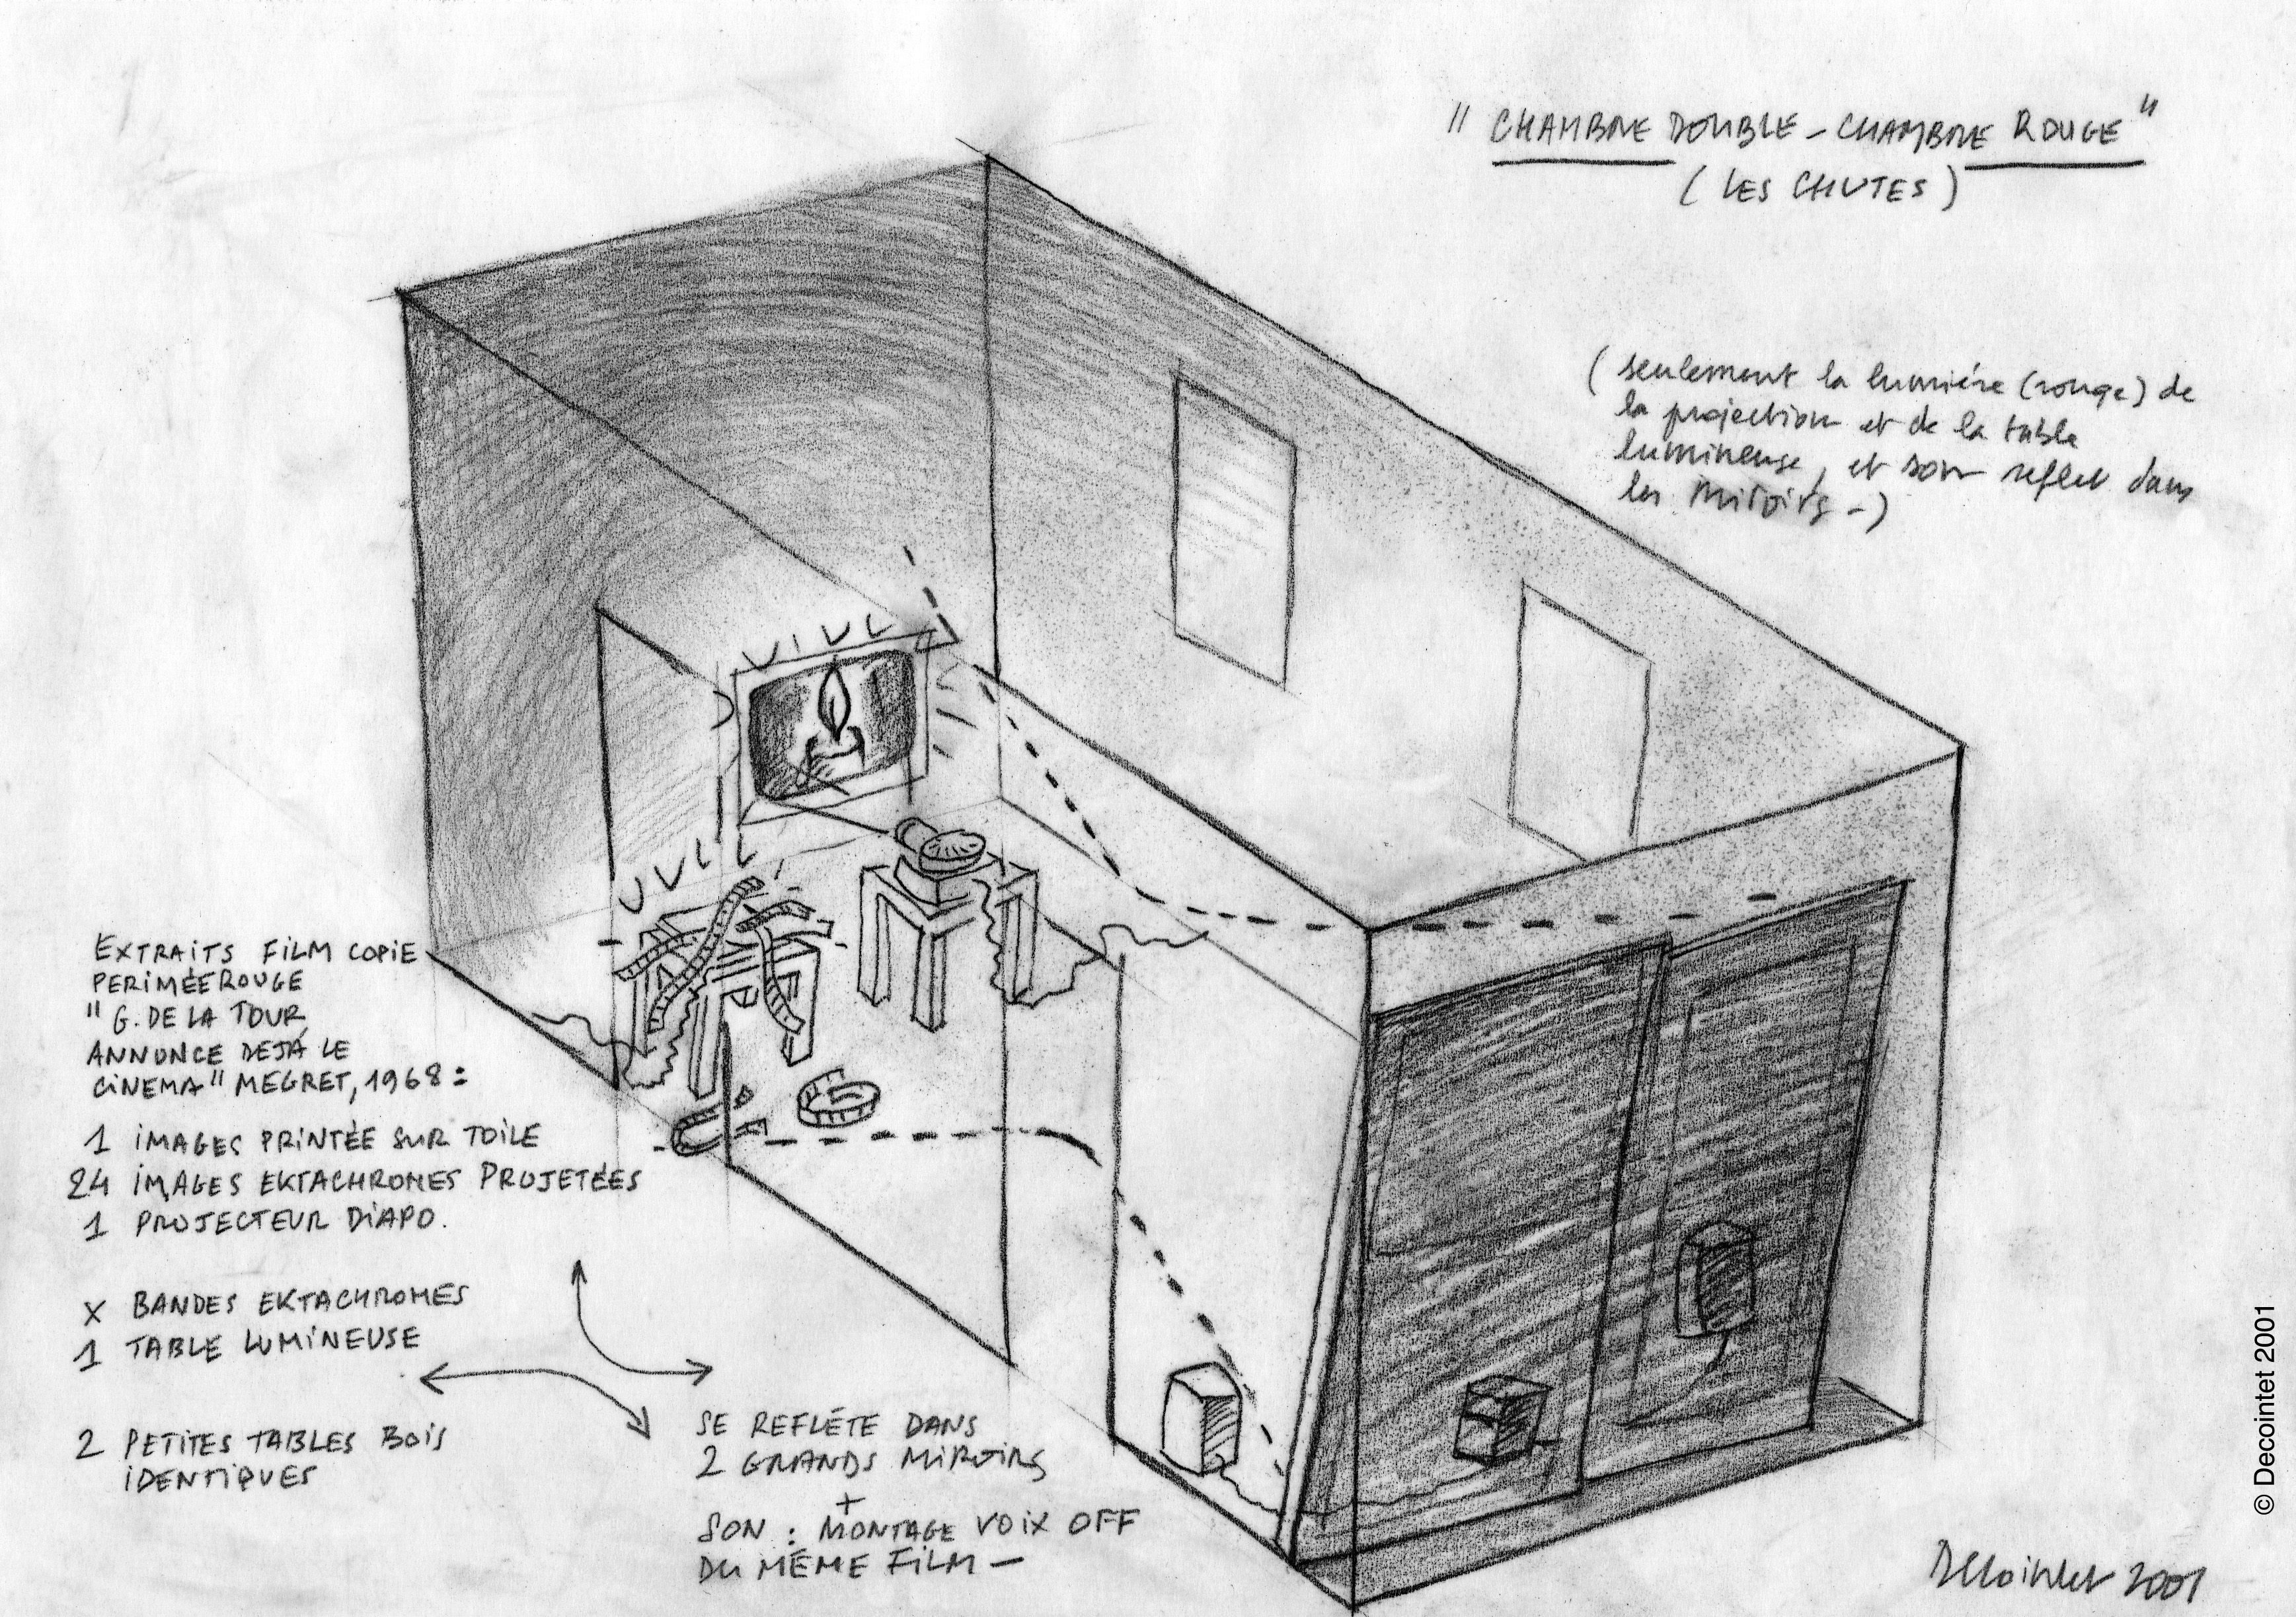 " CHAMBRE DOUBLE - CHAMBRE ROUGE "
( LES CHUTES )
( seulement la lumière (rouge) de
la projection et de la table
lumineuse, et son reflet dans
les miroirs -)
EXTRAITS FILM COPIE
PERIMÉE ROUGE
" G. DE LA TOUR
ANNONCE DEJÀ LE
CINEMA" MEGRET, 1968 :
1 IMAGES PRINTÉE SUR TOILE
24 IMAGES EKTACHROMES PROJETÉES
1 PROJECTEUR DIAPO.
X BANDES EKTACHROMES
1 TABLE LUMINEUSE
2 PETITES TABLES BOIS
IDENTIQUES
SE REFLÈTE DANS
2 GRANDS MIROIRS
+
SON : MONTAGE VOIX OFF
DU MÊME FILM —
Decointet 2001
© Decointet 2001